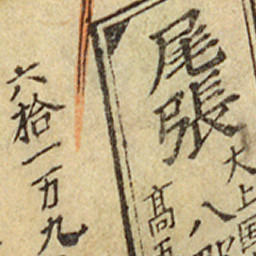 尾張
大上国
八郡
高五
六拾一万九